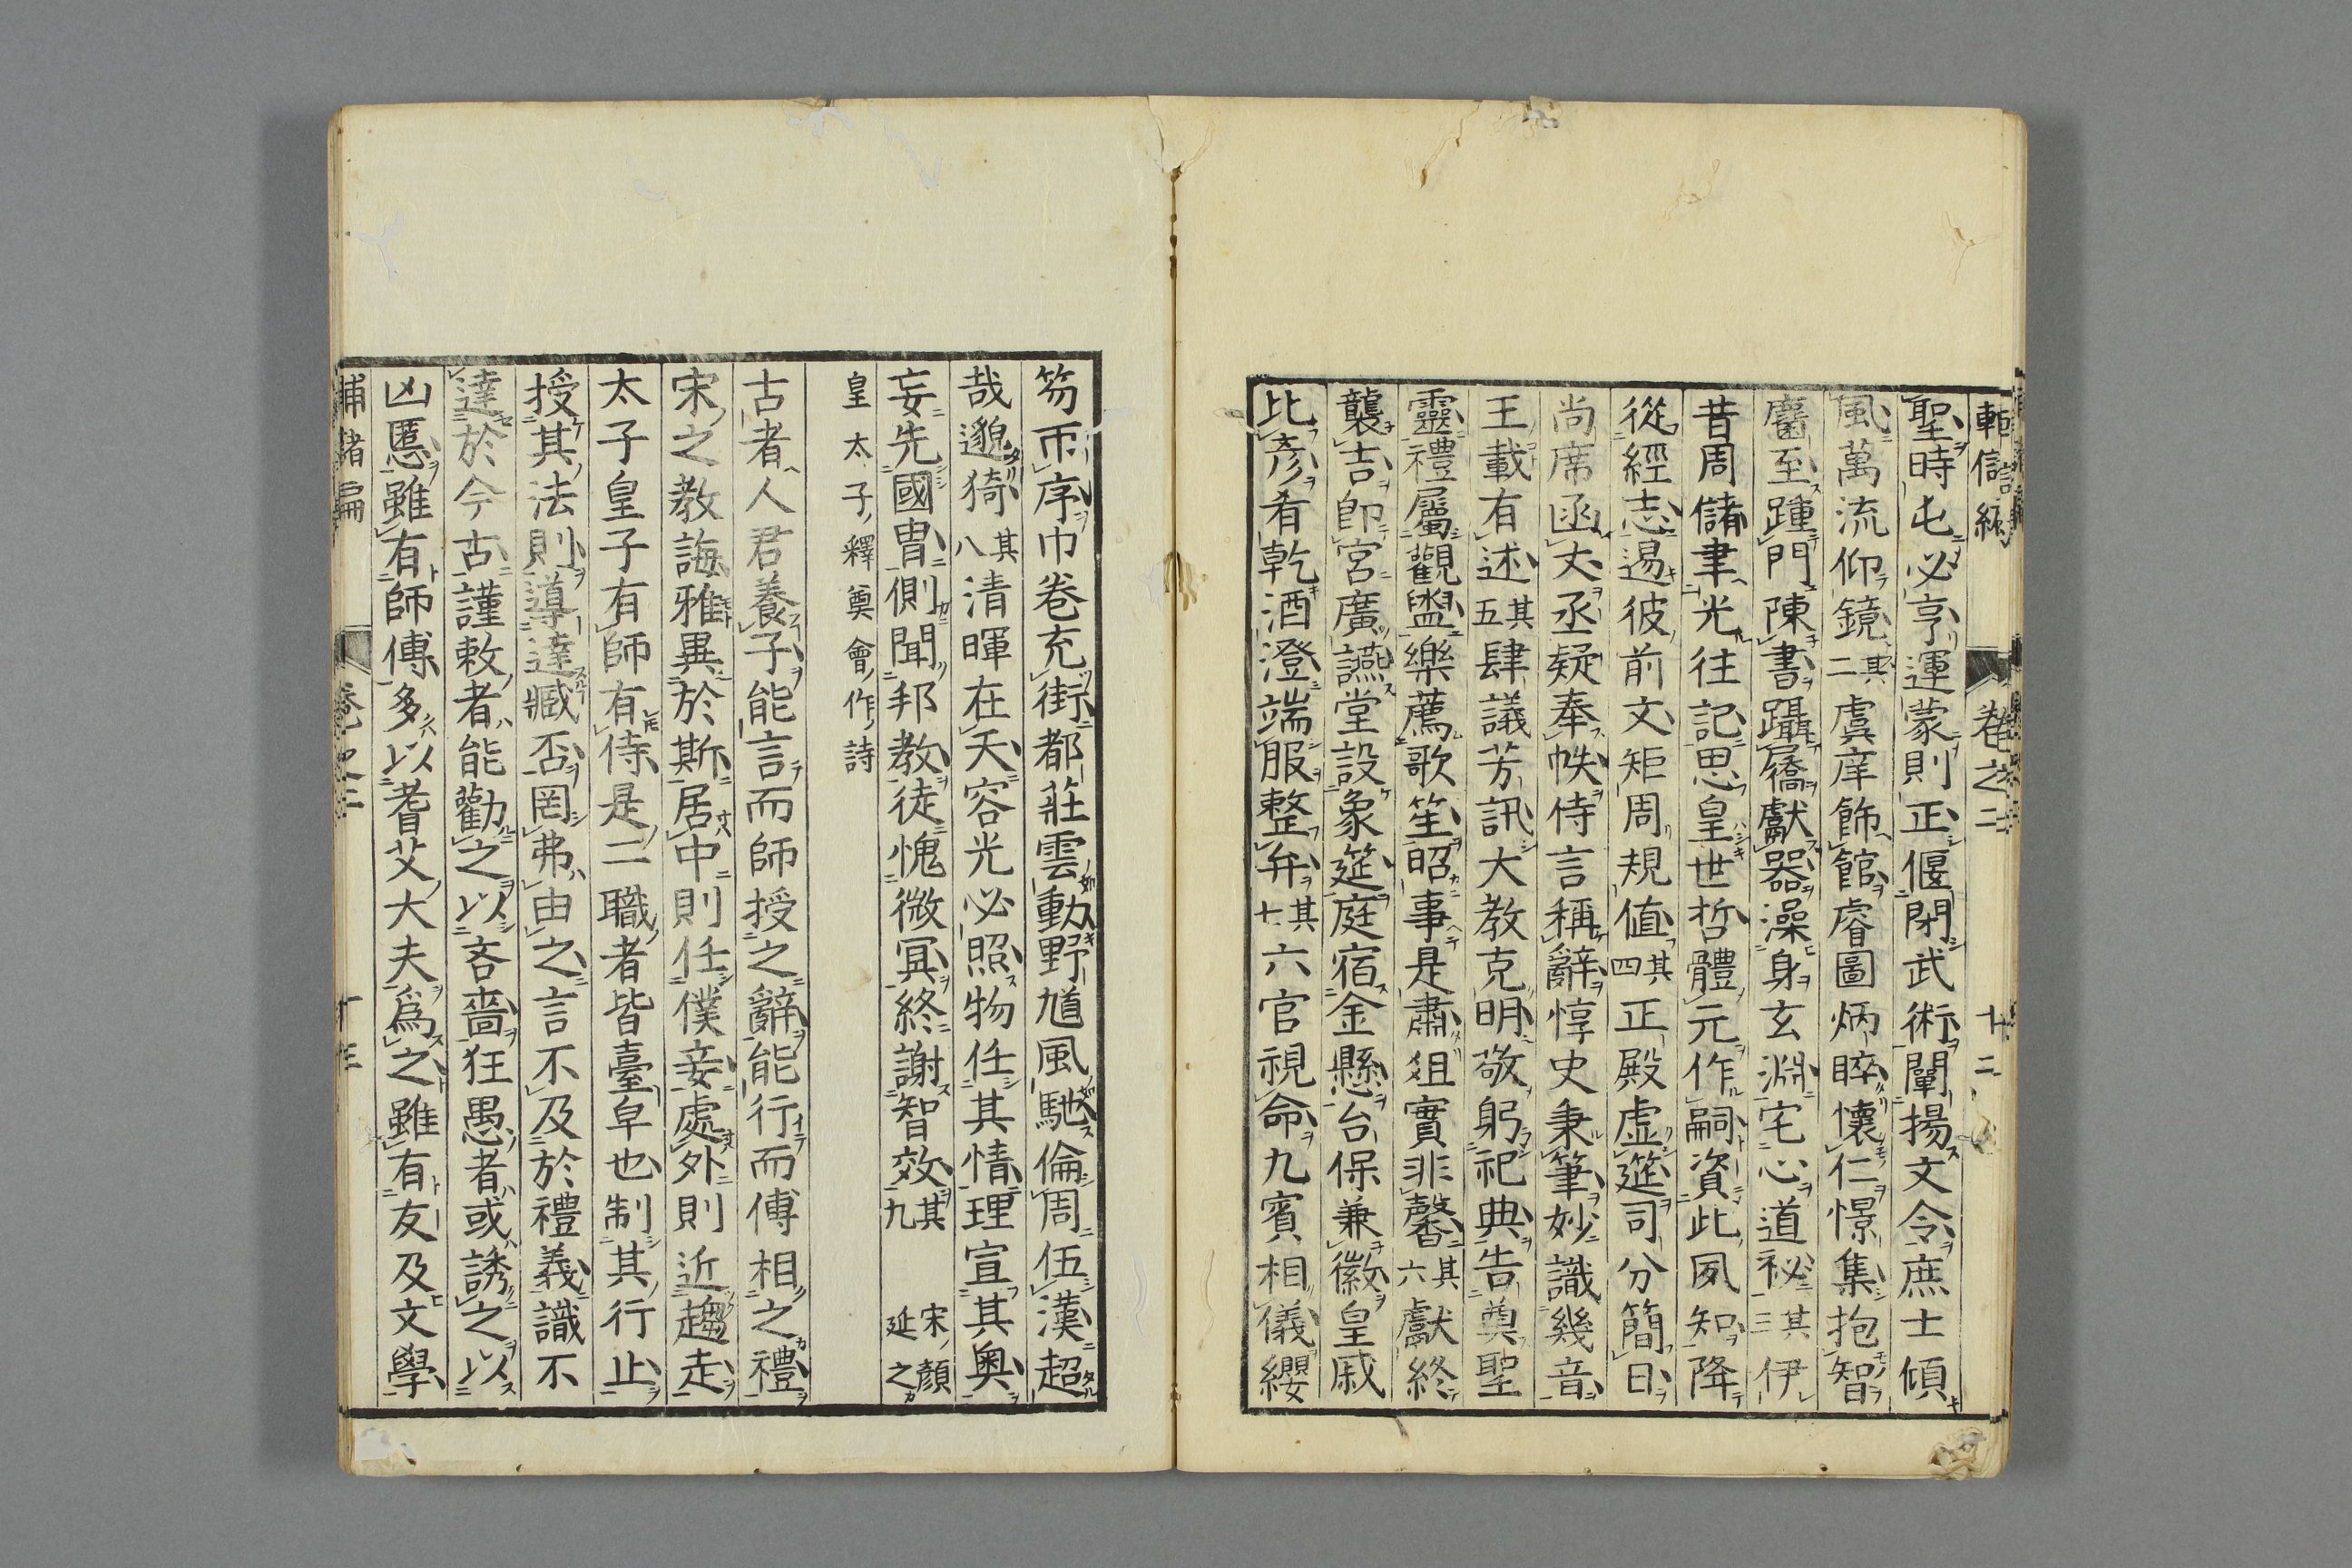 卷之二　十二
聖時屯必亨運蒙則正偃閉武術闡揚文令庶士傾
風萬流仰鏡其二虞庠飾館睿圖炳睟懷仁憬集抱智
麕至踵門陳書躡屩獻器澡身玄淵宅心道祕其三伊
昔周儲聿光往記思皇世哲體元作嗣資此夙知降
從經志逷彼前文矩周規値其四正殿虚筵司分簡日
尚席函丈丞疑奉帙侍言稱辭惇史秉筆妙識幾音
王載有述其五肆議芳訊大教克明敬躬祀典告奠聖
靈禮屬觀盥樂薦歌笙昭事是肅俎實非馨其六獻終
襲吉即宮廣讌堂設象筵庭宿金懸台保兼徽皇戚
比彦肴乾酒澄端服整弁其七六官視命九賓相儀纓
笏帀序巾卷充街都莊雲動野馗風馳倫周伍漢超
哉邈猗其八清暉在天容光必照物任其情理宣其奧
妄先國胄側聞邦教徒愧微冥終謝智效其九　宋ノ顏延之カ
皇太子ノ釋奠會ノ作ノ詩
古者人君養子能言而師授之辭能行而傅相之禮
宋之教誨雅異於斯居中則任僕妾處外則近趨走
太子皇子有師有侍是二職者皆臺皁也制其行止
授其法則導達臧否罔弗由之言不及於禮義識不
達於今古謹敕者能勸之以吝嗇狂愚者或誘之以
凶慝雖有師傅多以耆艾大夫爲之雖有友及文學
卷之二　十三